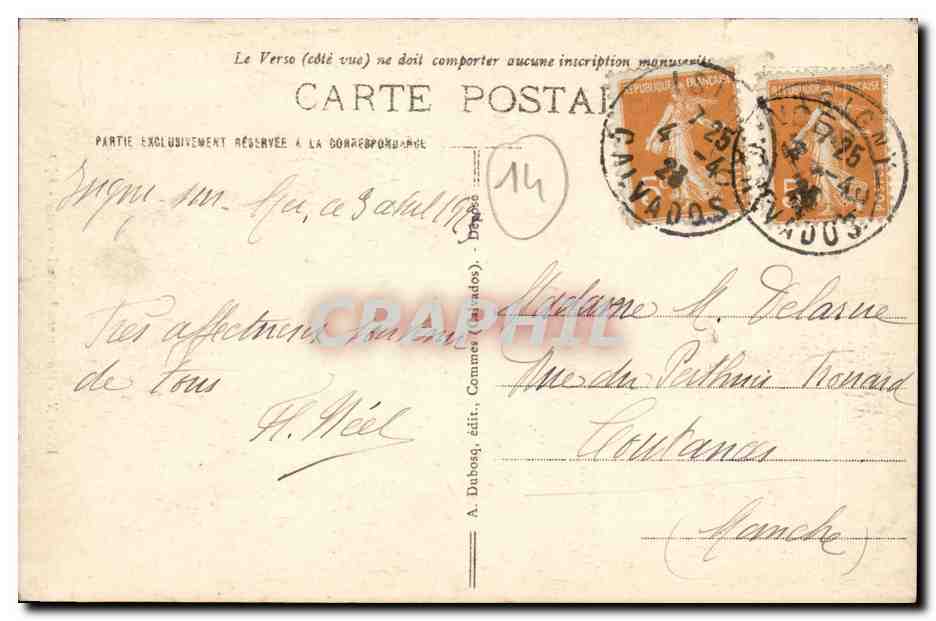 Le Verso (côté vue) ne doit comporter aucune inscription manuscrite
CARTE POSTAL
PARTIE EXCLUSIVEMENT RÉSERVÉE A LA CORRESPONDANCE
14
REPUBLIQUE FRANÇAISE
REPUBLIQUE FRANÇAISE
7-25
4-4
23
CALVADOS
ISIGNY
7-25
CALVADOS
sur Mer, ce 3 avril 1923
Très affectueux souvenir
de tous
H. Néel
A. Dubosq, édit., Commes (Calvados). - Déposé
Madame M. Delarue
Rue du Perthuis Trouard
Coutances
(Manche)
CRAPHIL